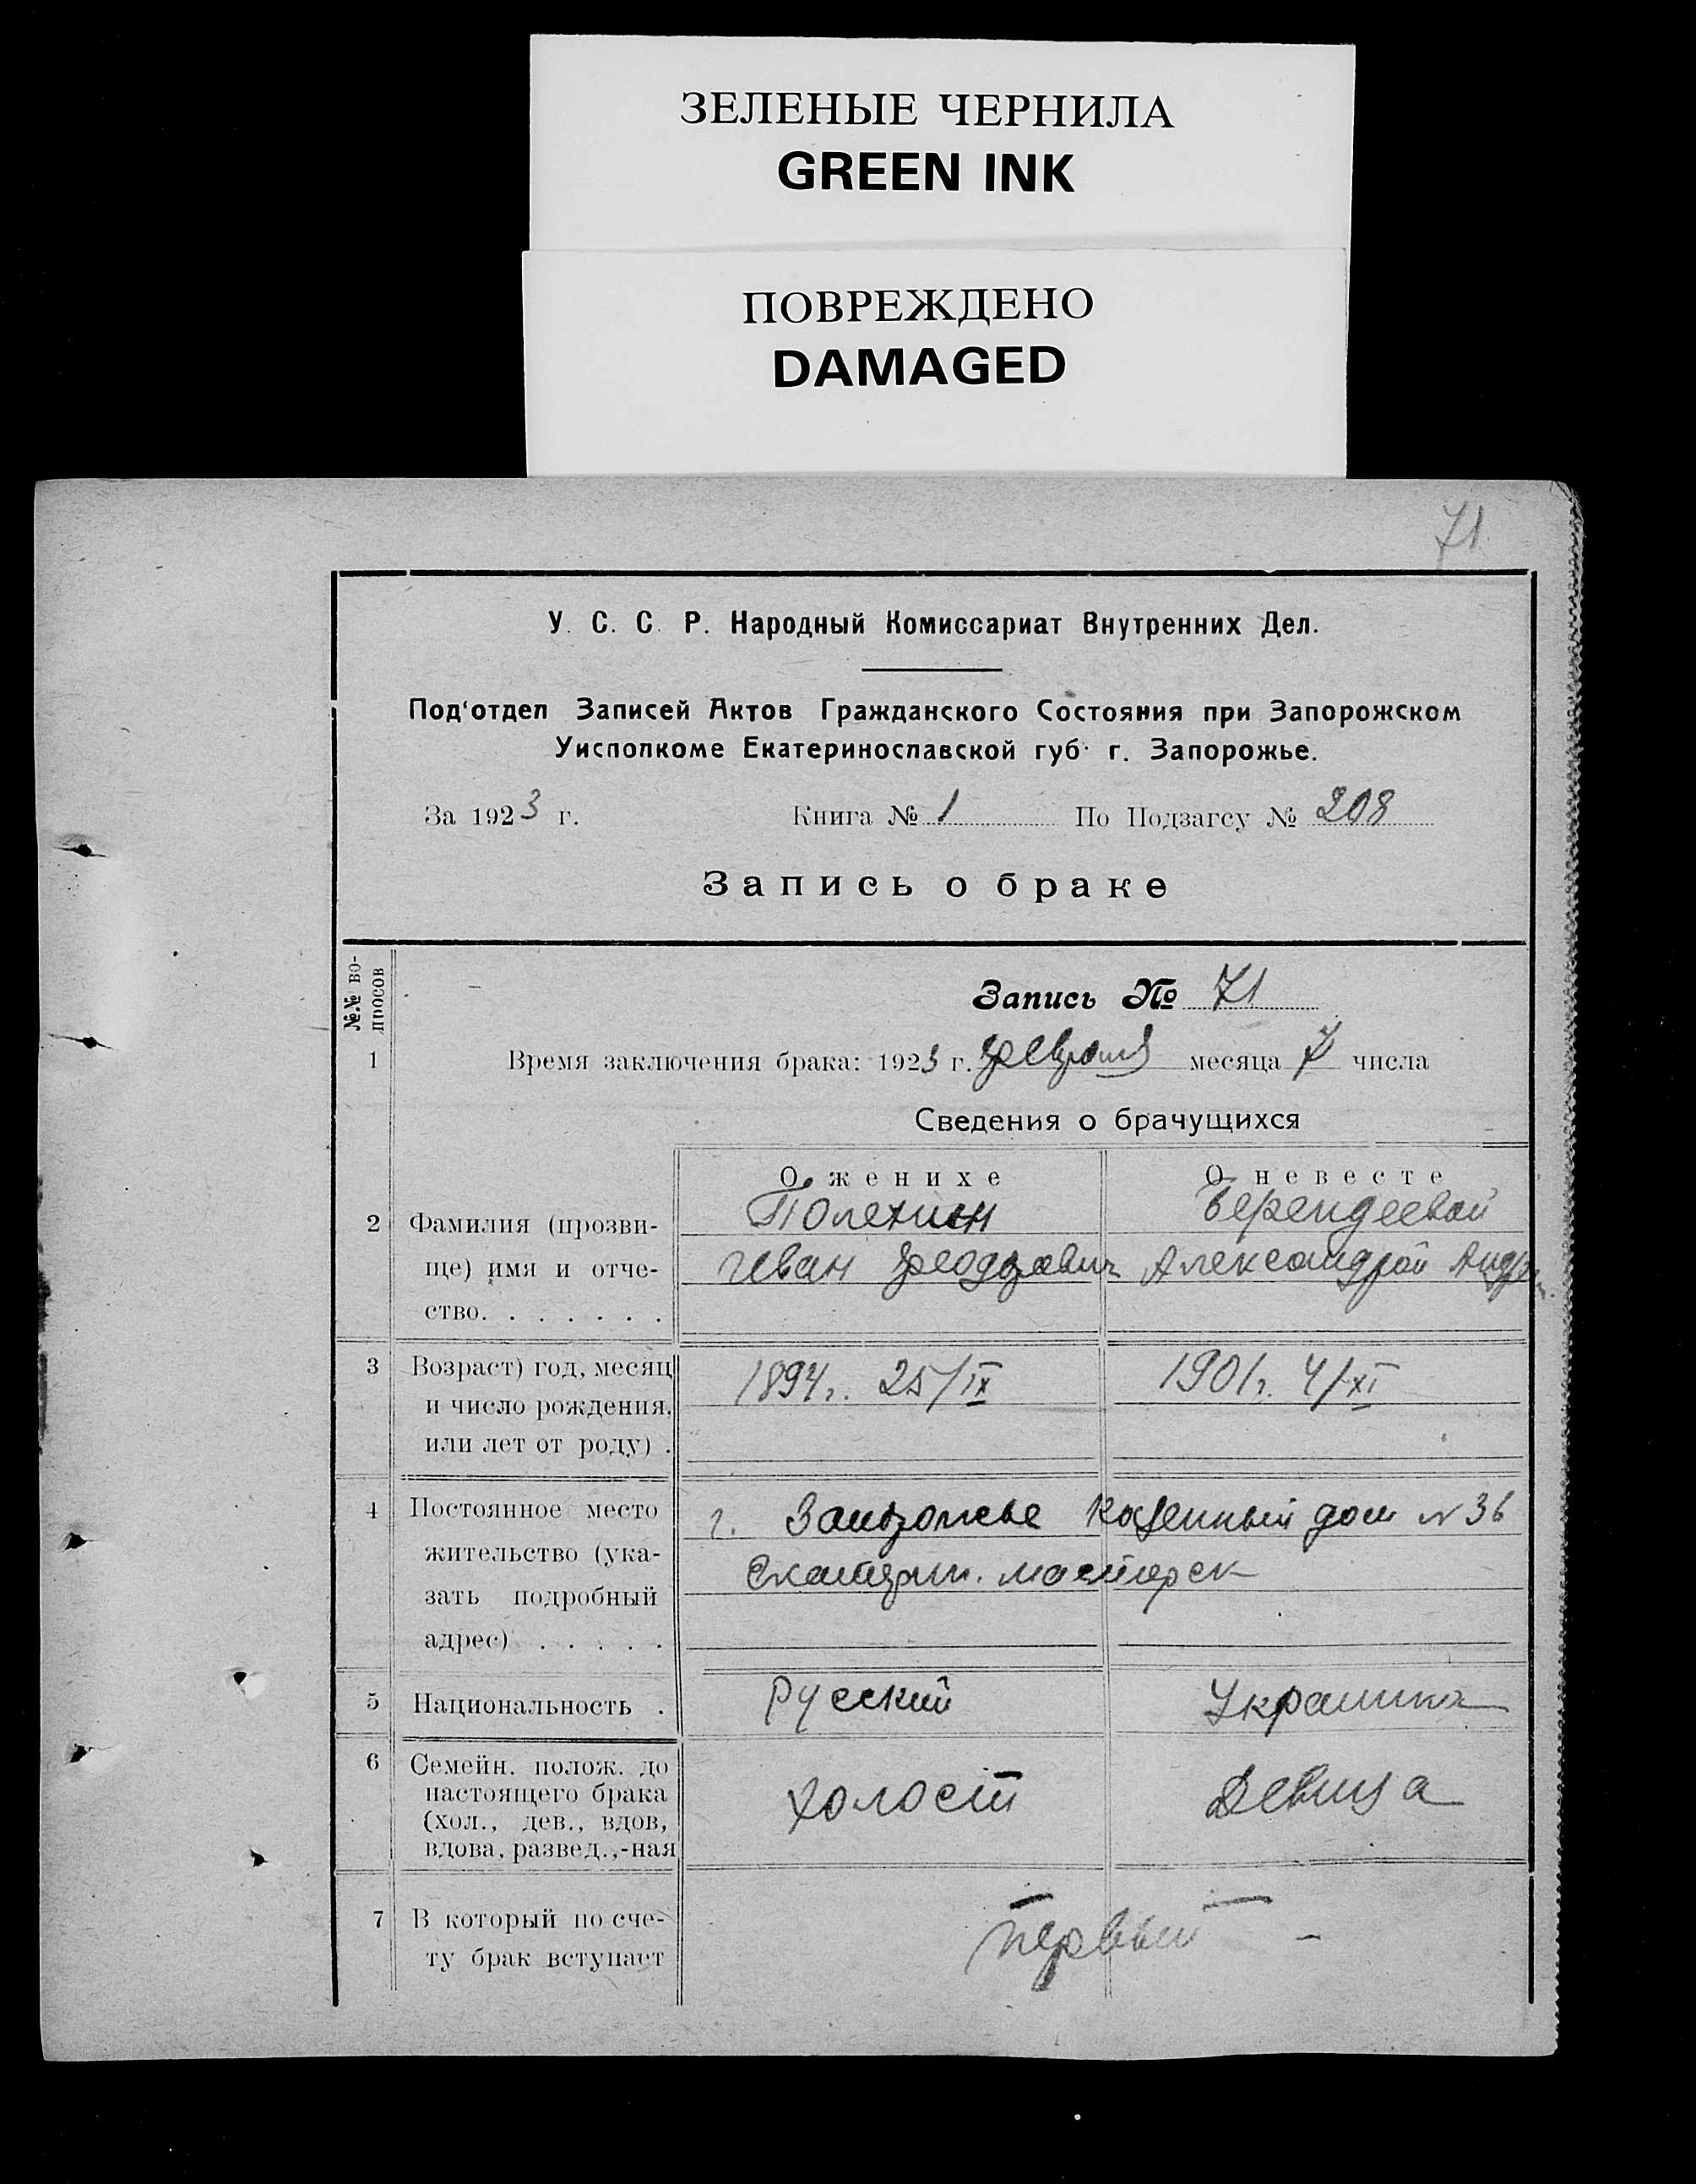 ЗЕЛЕНЫЕ ЧЕРНИЛА
GREEN INK
ПОВРЕЖДЕНО
DAMAGED
71
У. С. С. Р. Народный Комиссариат Внутренних Дел.
Под‘отдел Записей Актов Гражданского Состояния при Запорожском
Уисполкоме Екатеринославской губ. г. Запорожье.
За 1923 г. Книга № 1 По Подзагсу № 208
Запись о браке
№.№ во-
просов
Запись № 71
1 Время заключения брака: 1923 г. февраля месяца 7 числа
Сведения о брачущихся
О женихе О невесте
2 Фамилия (прозви- Берендеевой
ще) имя и отче- Иван Феодорович Александрой
ство. . . . . . .
3 Возраст) год, месяц 1894 г. 25/IX 1901 г. 4/XI
и число рождения,
или лет от роду) .
4 Постоянное место г. Запорожье Казенный дом № 36
жительство (ука- Екатерин. мастерск
зать подробный
адрес) . . . . .
5 Национальность . Русский Украинка
6 Семейн. полож. до
настоящего брака холост Девица
(хол., дев., вдов,
вдова, развед.,-ная
7 В который по сче- первый
ту брак вступает